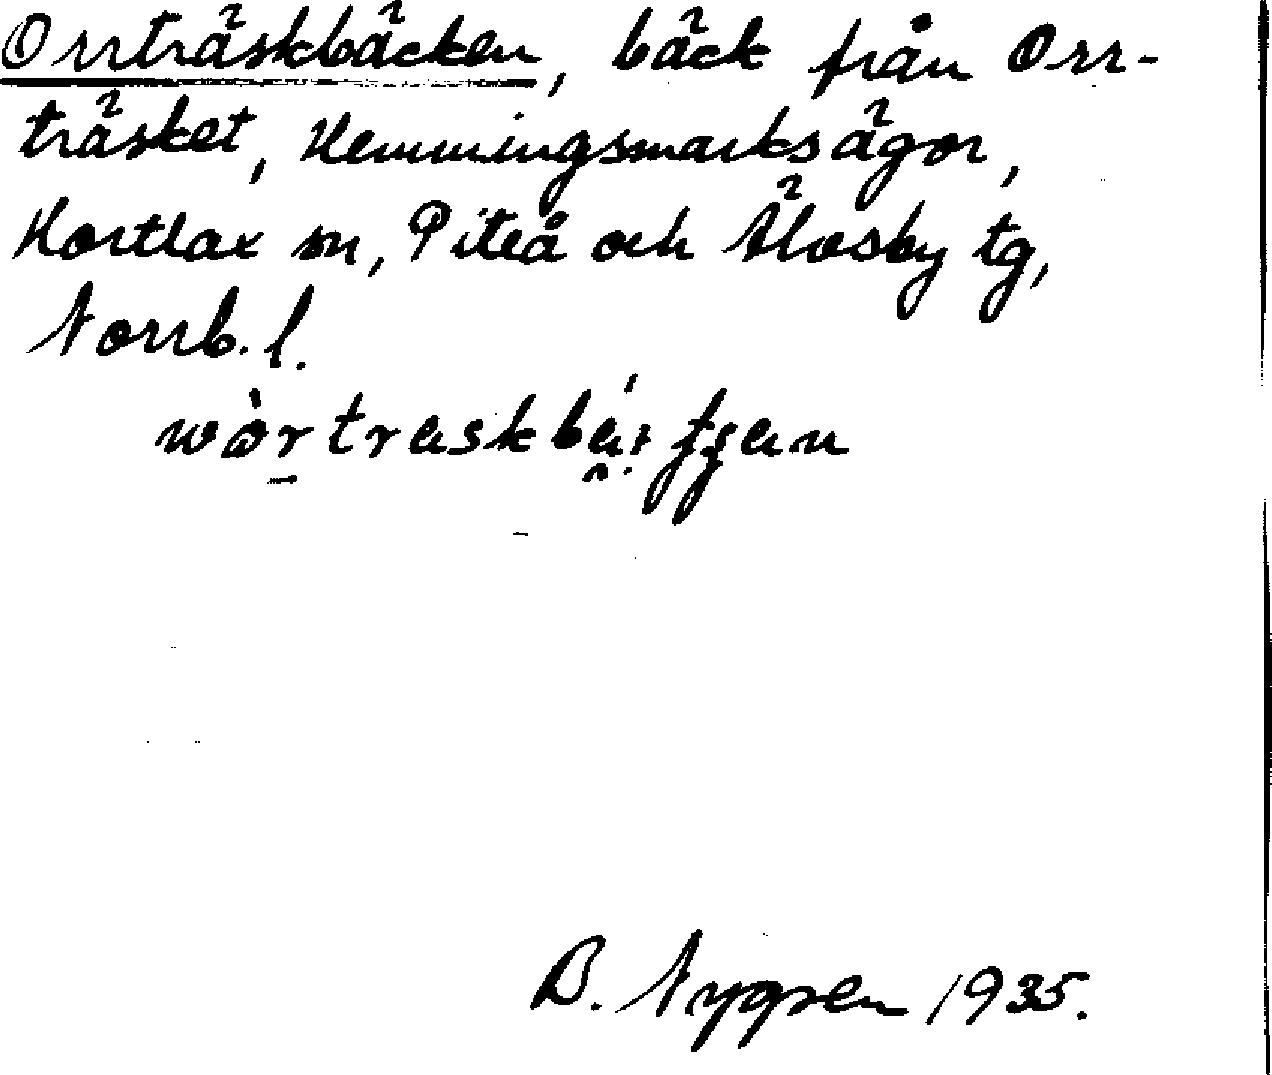 Orrträskbäcken, bäck från Orr-
träsket, Hemmingsmarksägor,
Hortlax sn, Piteå och Älvsby tg,
Norrb. l.
B. Nygren 1935.